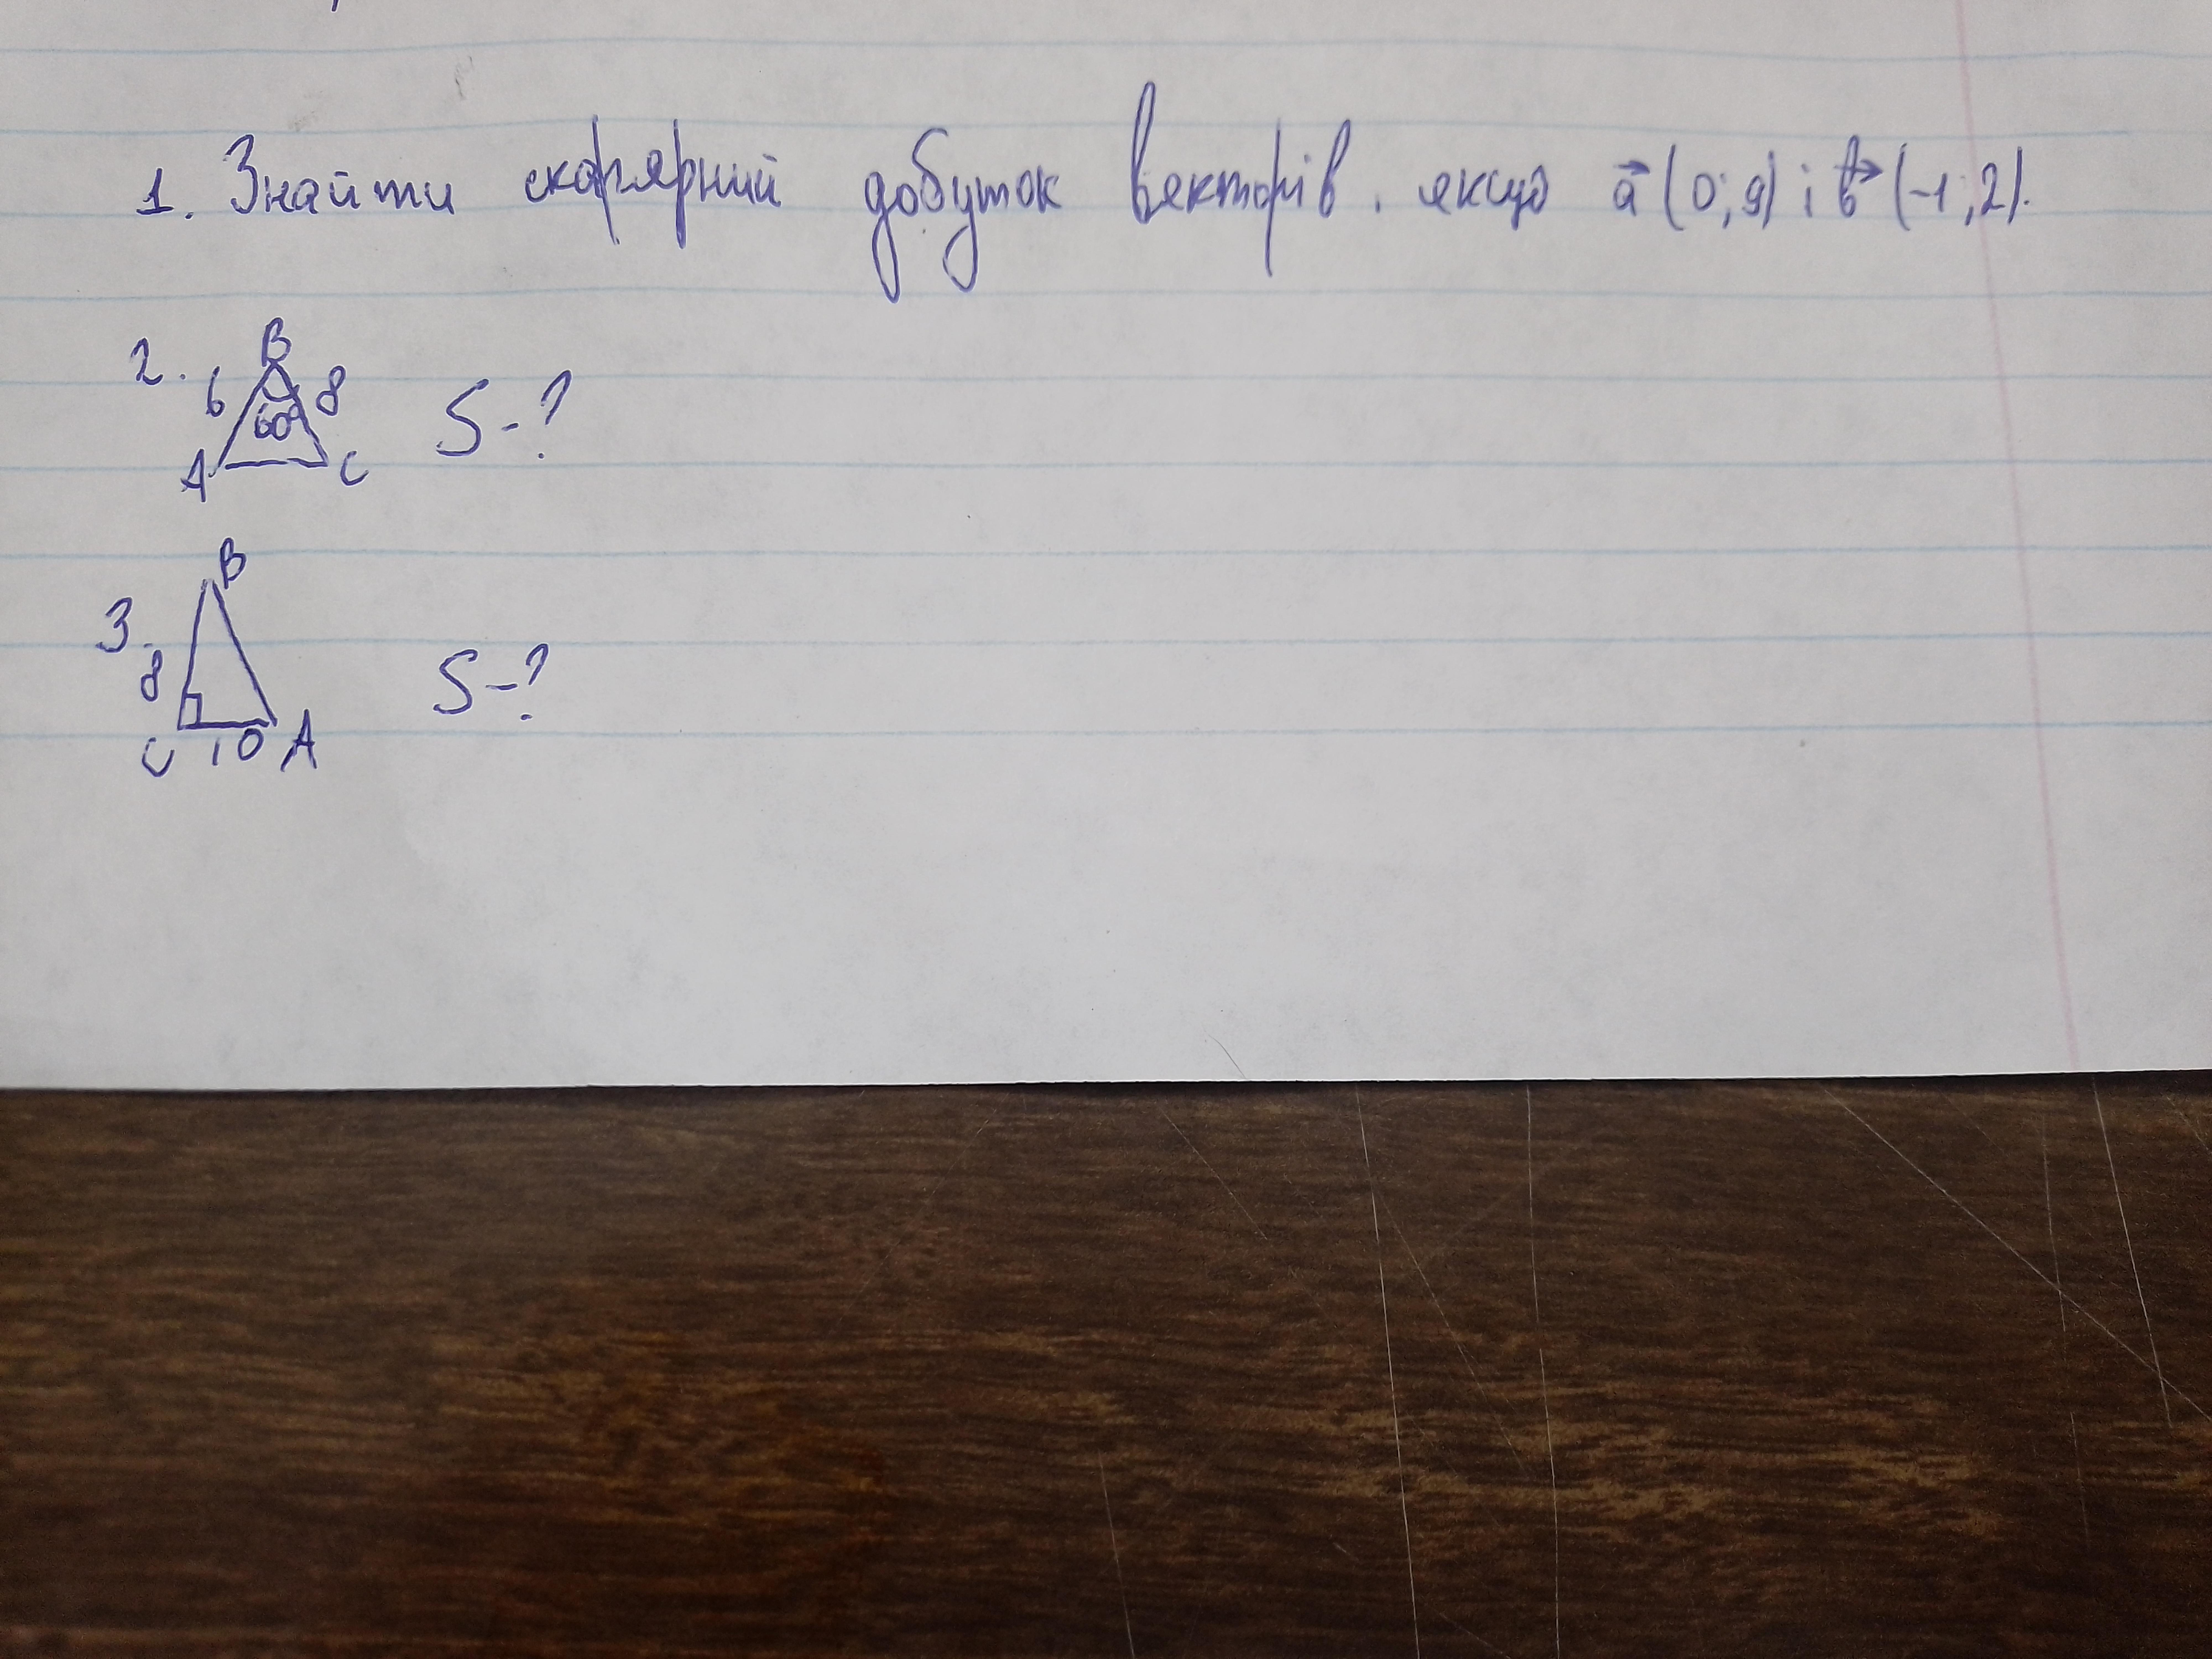 1. Знайти скалярний добуток векторів, якщо a⃗ (0; 9) і b⃗ (-1; 2).
2. B
6 8
60°
A C
S-?
3. B
8
C 10 A
S-?